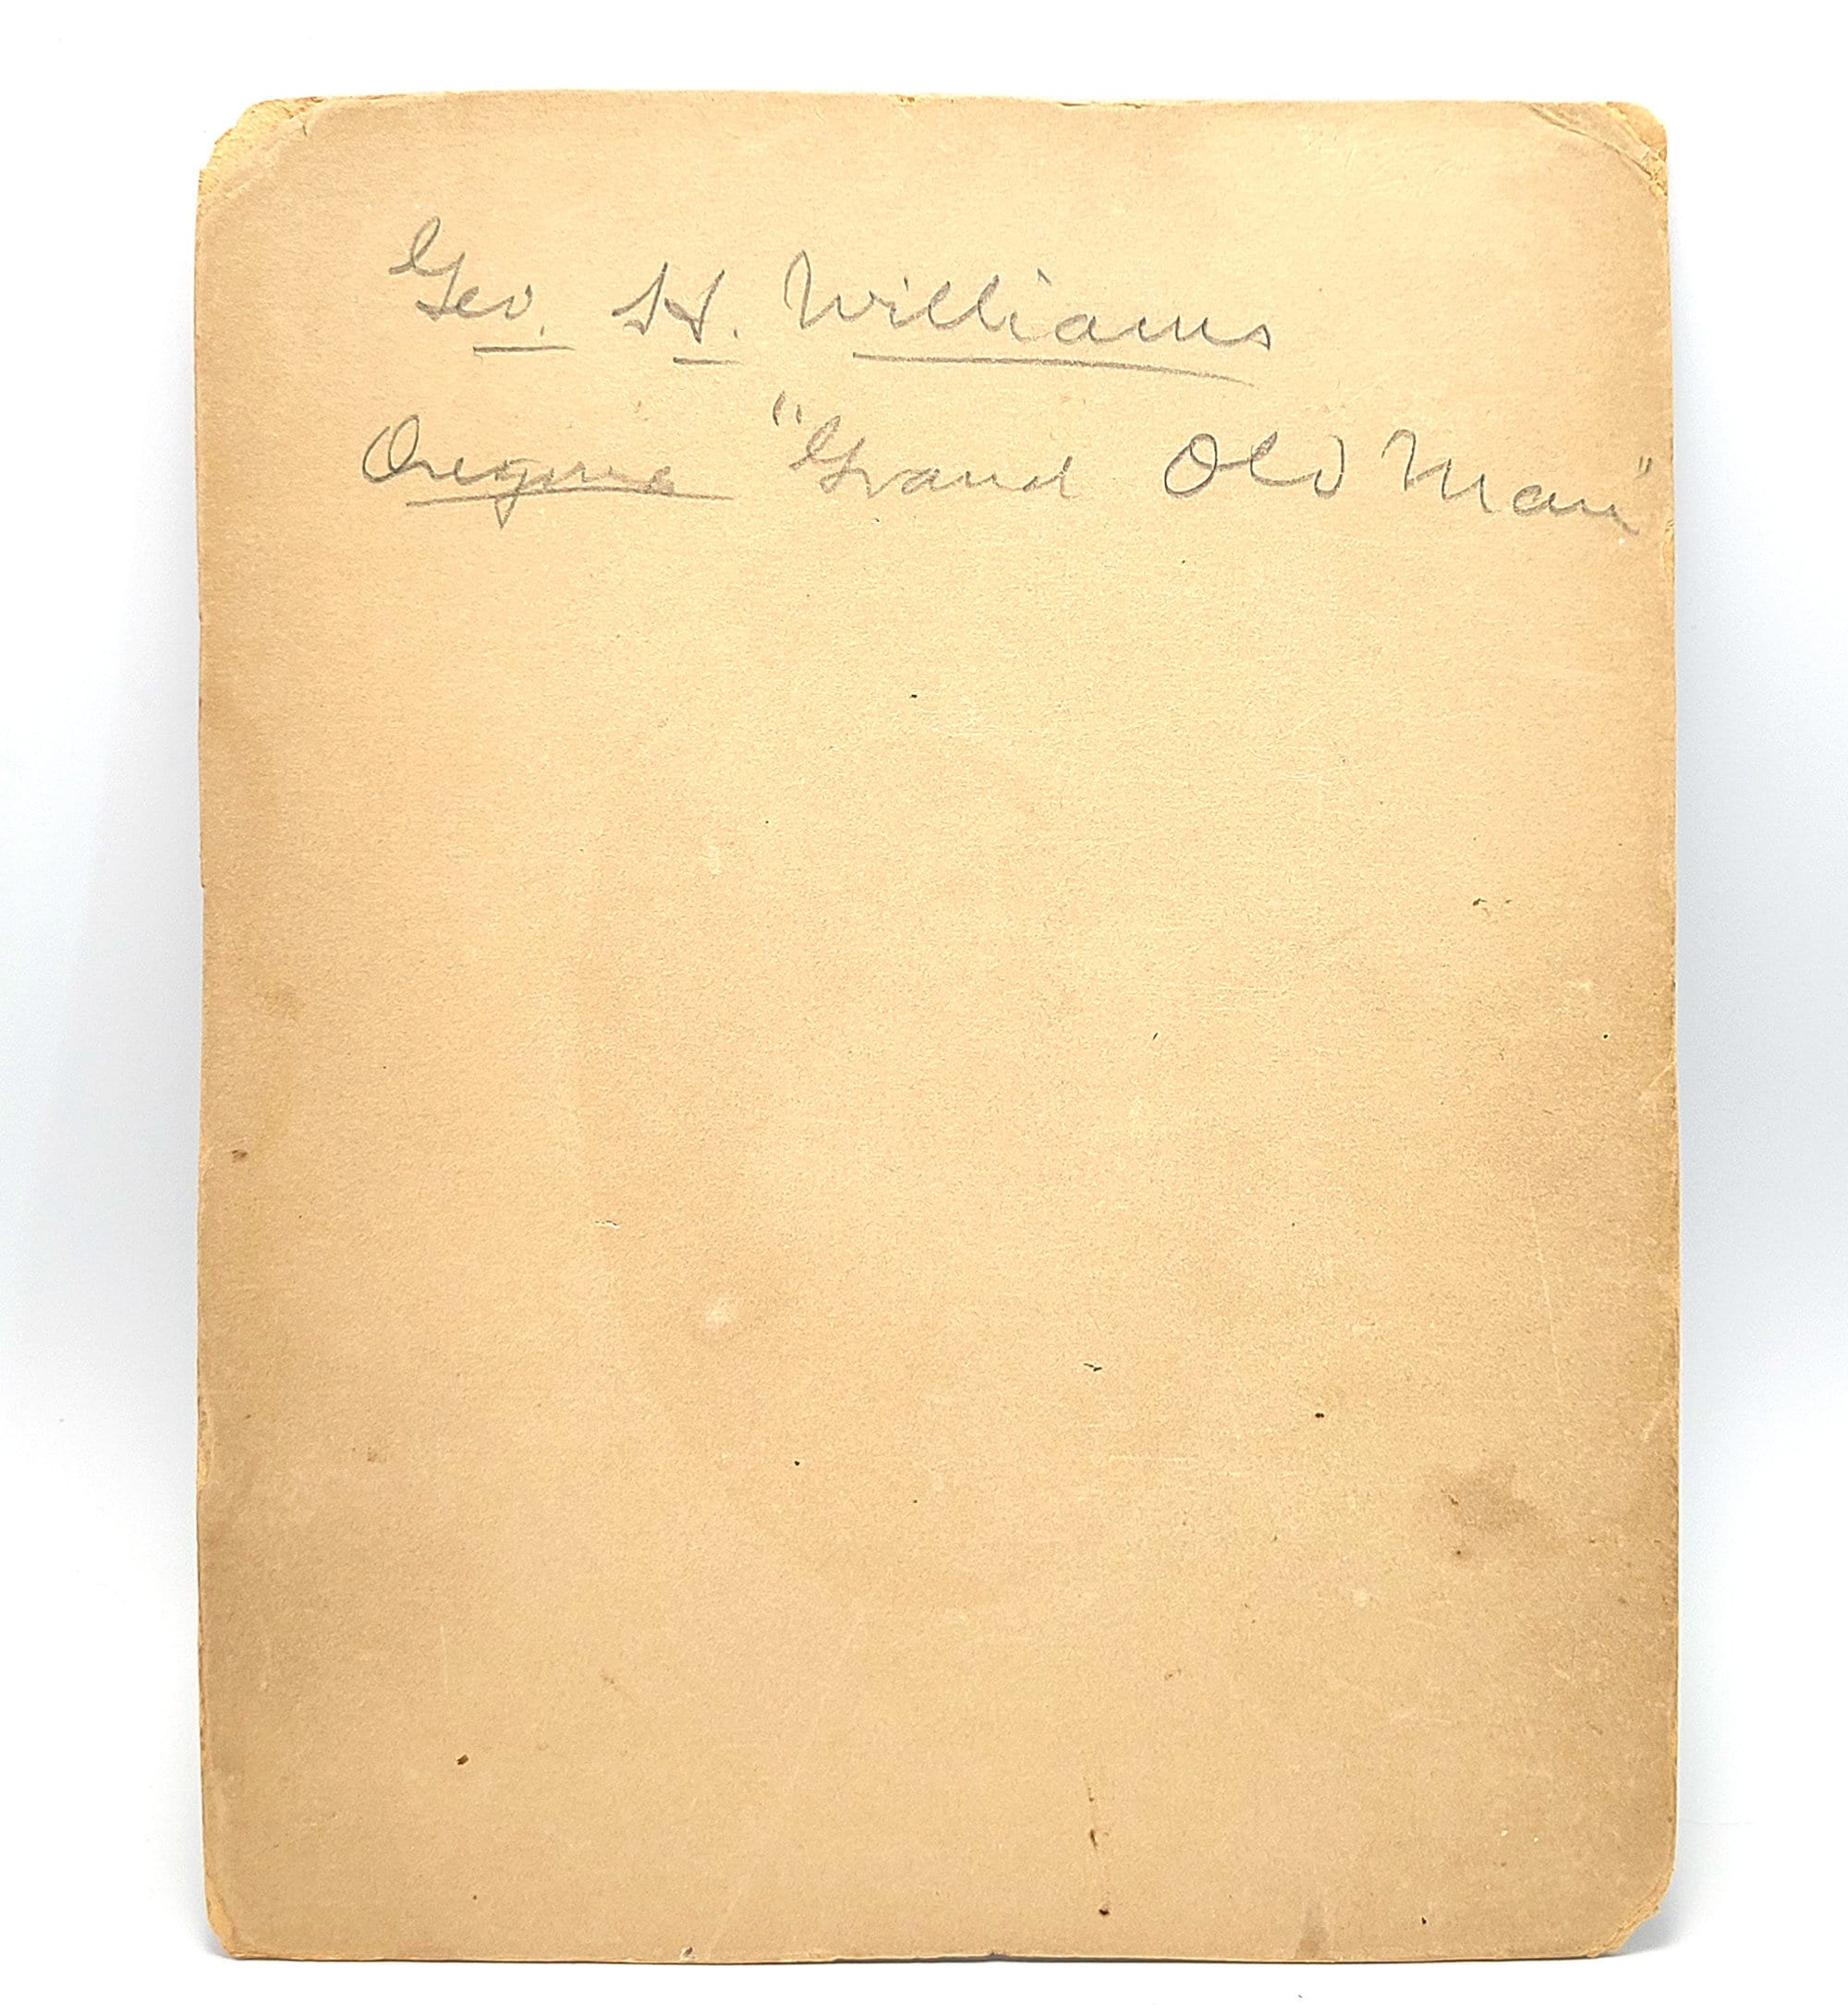 Geo. H. Williams
Oregons "Grand Old Man"